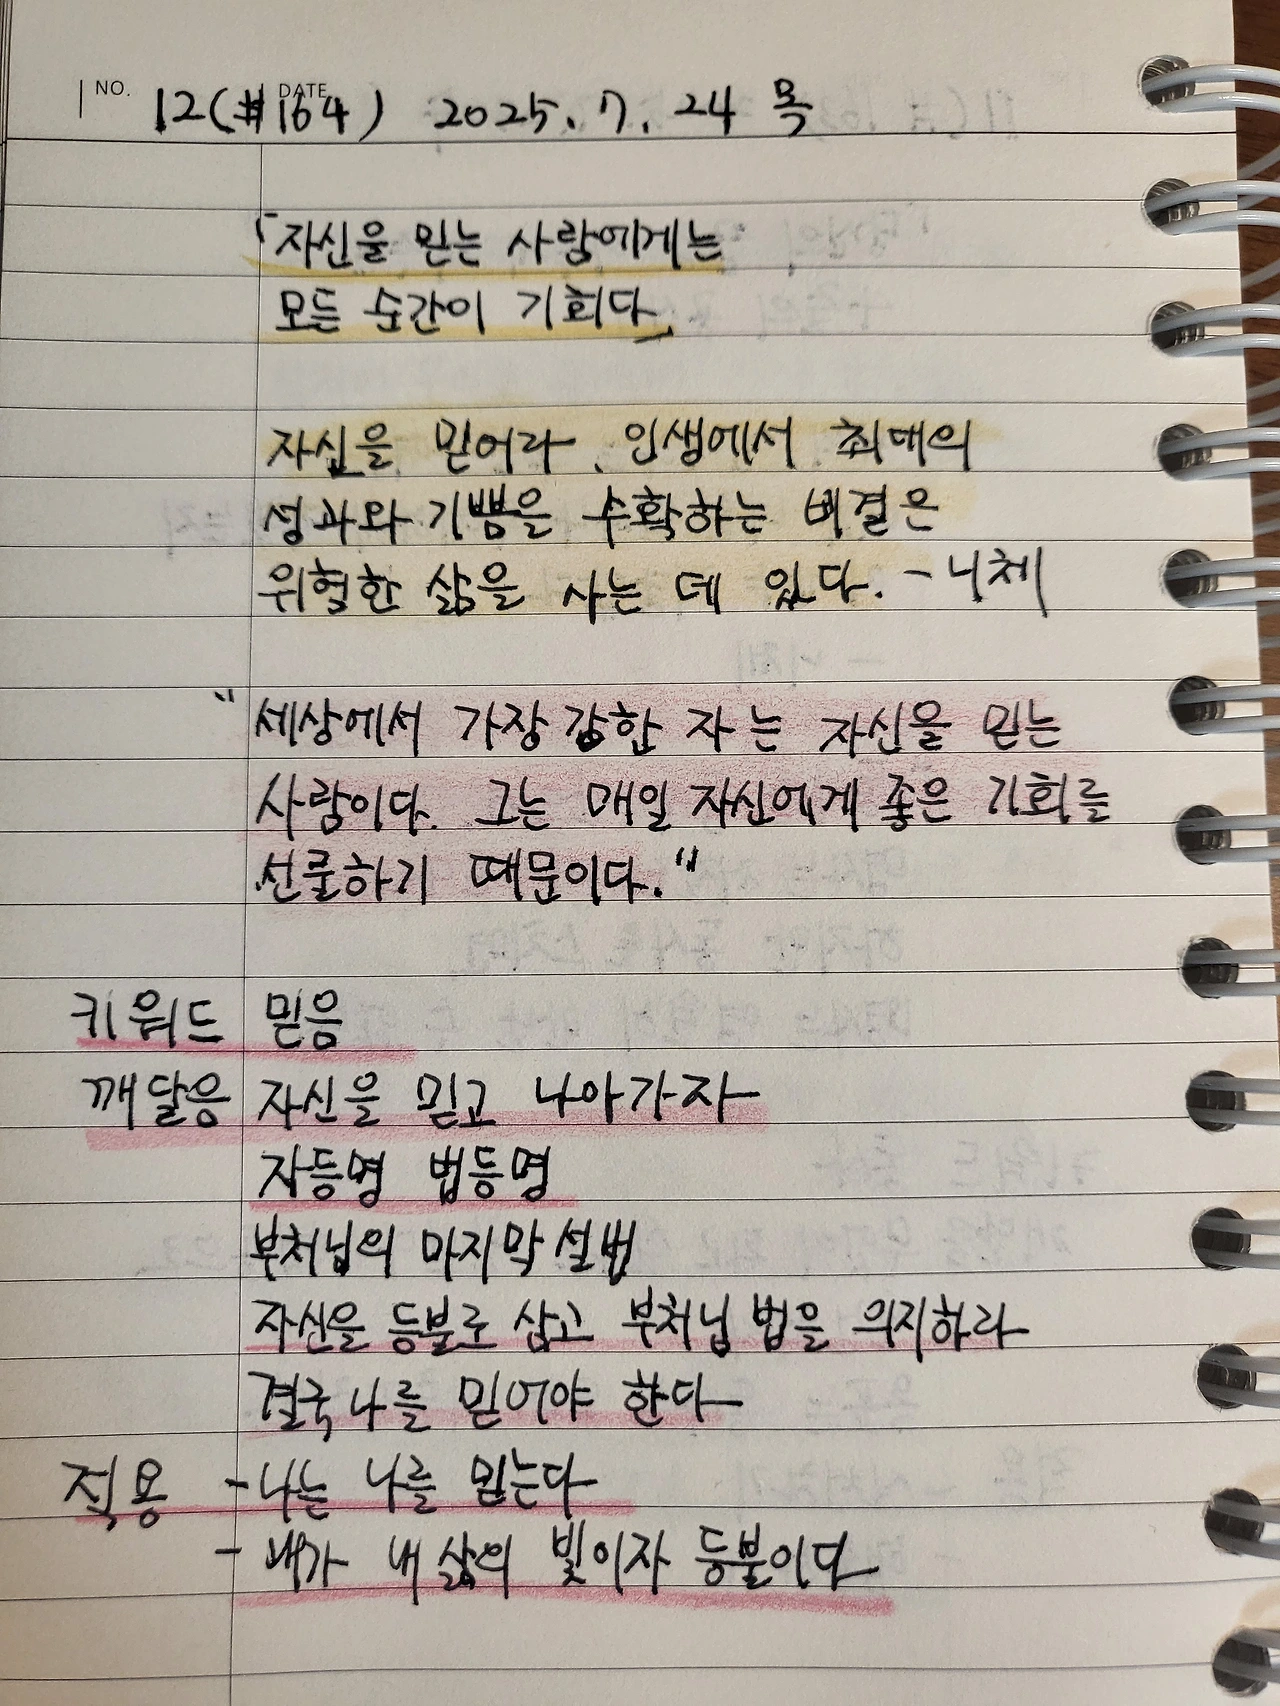 NO. 12(#164) DATE 2025. 7. 24 목
「자신을 믿는 사람에게는
모든 순간이 기회다」
자신을 믿어라. 인생에서 최대의
성과와 기쁨을 수확하는 비결은
위험한 삶을 사는 데 있다. - 니체
"세상에서 가장 강한 자는 자신을 믿는
사람이다. 그는 매일 자신에게 좋은 기회를
선물하기 때문이다."
키워드 믿음
깨달음 자신을 믿고 나아가자
자등명 법등명
부처님의 마지막 설법
자신을 등불로 삼고 부처님 법을 의지하라
결국 나를 믿어야 한다
적용 - 나는 나를 믿는다
- 내가 내 삶의 빛이자 등불이다